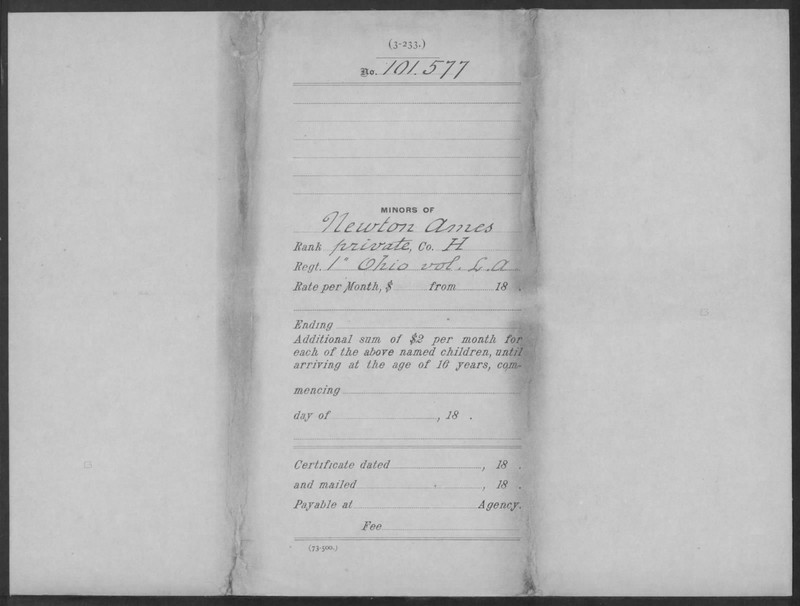 (3-233.)
No. 101.577
MINORS OF
Newton Ames
Rank private, Co. H
Regt. 1" Ohio vol. L. A
Rate per Month, $ from 18 .
Ending
Additional sum of $2 per month for
each of the above named children, until
arriving at the age of 16 years, com-
mencing
day of , 18 .
Certificate dated , 18 .
and mailed , 18 .
Payable at Agency.
Fee
(73-500.)